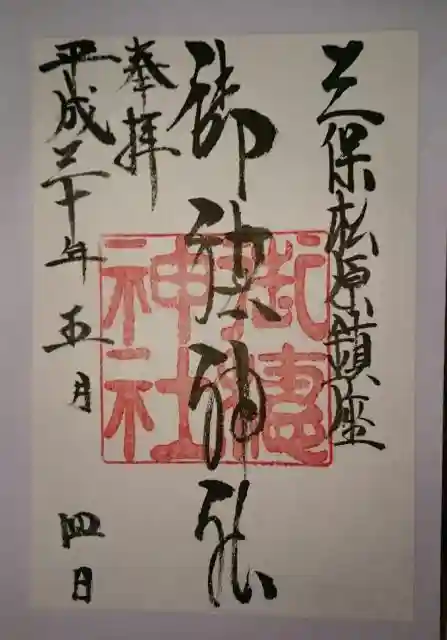 三保松原鎮座
御穂神社
奉拝
平成三十年五月四日
御穂神社